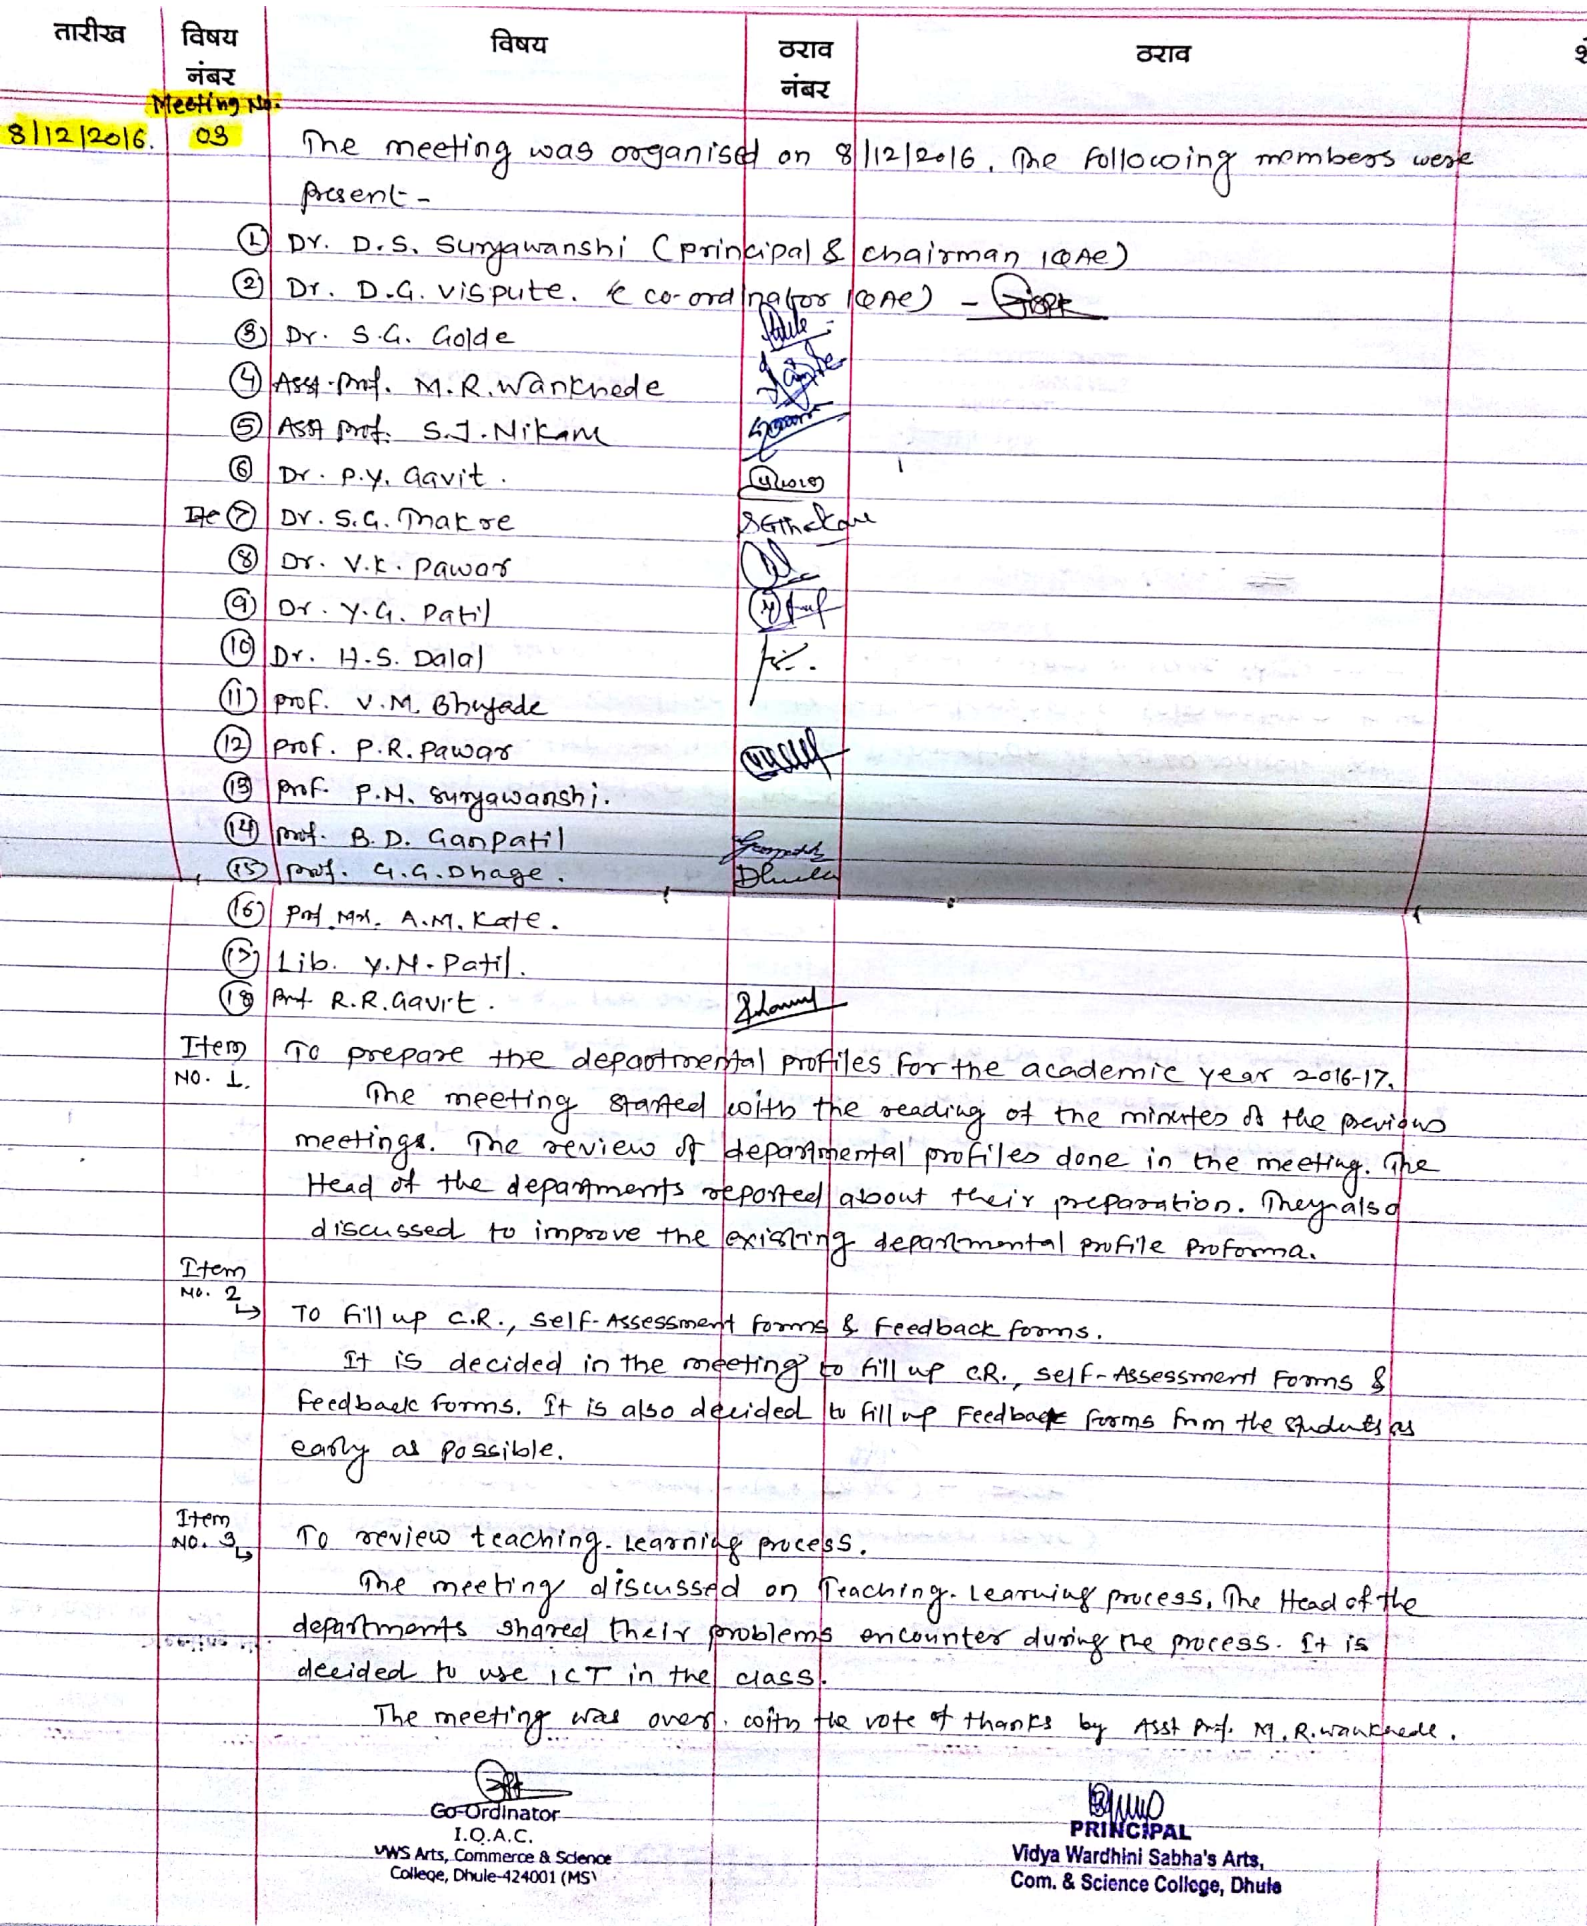 तारीख विषय नंबर विषय ठराव नंबर ठराव
Meeting No.
8/12/2016. 03 The meeting was organised on 8/12/2016. The following members were
present -
① Dr. D.S. Suryawanshi (principal & chairman IQAC)
② Dr. D.G. Vispute. ( co-ordinator IQAC) -
③ Dr. S.G. Golde
④ Asst. Prof. M.R. Wankhede
⑤ Asst Prof. S.J. Nikam
⑥ Dr. P.Y. Gavit.
⑦ Dr. S.G. Thakre SGThakare
⑧ Dr. V.K. Pawar
⑨ Dr. Y.G. Patil
⑩ Dr. H.S. Dalal
⑪ Prof. V.M. Bhujade
⑫ Prof. P.R. Pawar
⑬ Prof. P.N. Suryawanshi.
⑭ Prof. B.D. Ganpatil
⑮ Prof. G.G. Dhage.
⑯ Prof. A.M. Kate.
⑰ Lib. Y.N. Patil.
⑱ Prof R.R. Gavit.
Item NO. 1. To prepare the departmental profiles for the academic year 2016-17.
The meeting started with the reading of the minutes of the previous
meetings. The review of departmental profiles done in the meeting. The
Head of the departments reported about their preparation. They also
discussed to improve the existing departmental profile proforma.
Item
No. 2 → To fill up C.R., Self-Assessment forms & Feedback forms.
It is decided in the meeting to fill up C.R., Self-Assessment Forms &
Feedback forms. It is also decided to fill up Feedback forms from the students as
early as possible.
Item
NO. 3 → To review teaching-Learning process.
The meeting discussed on Teaching-Learning process. The Head of the
departments shared their problems encounter during the process. It is
decided to use ICT in the class.
The meeting was over with the vote of thanks by Asst Prof. M.R. Wankhede.
Co-Ordinator
I.Q.A.C.
VWS Arts, Commerce & Science
College, Dhule-424001 (MS)
PRINCIPAL
Vidya Wardhini Sabha's Arts,
Com. & Science College, Dhule